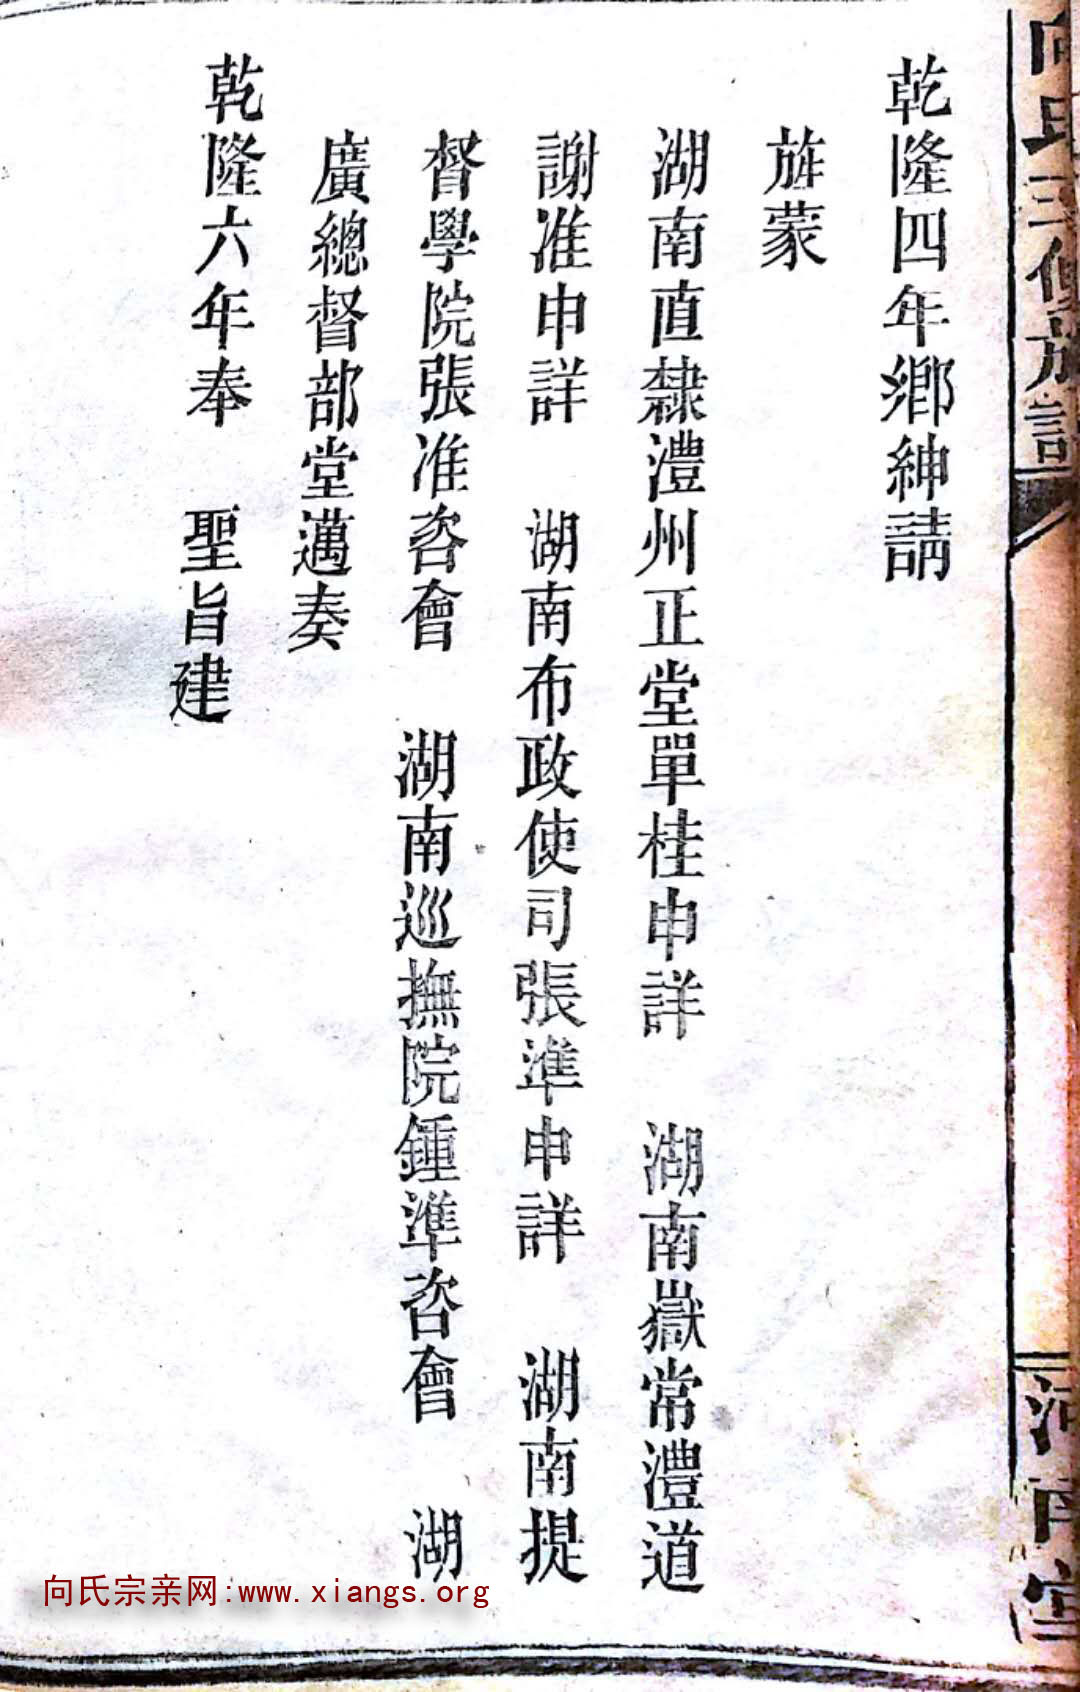 乾隆四年鄉紳請
旌蒙
湖南直隸澧州正堂單桂申詳　湖南嶽常澧道
謝准申詳　湖南布政使司張準申詳　湖南提
督學院張准咨會　湖南巡撫院鍾準咨會　湖
廣總督部堂邁奏
乾隆六年奉　聖旨建
向氏宗亲网:www.xiangs.org